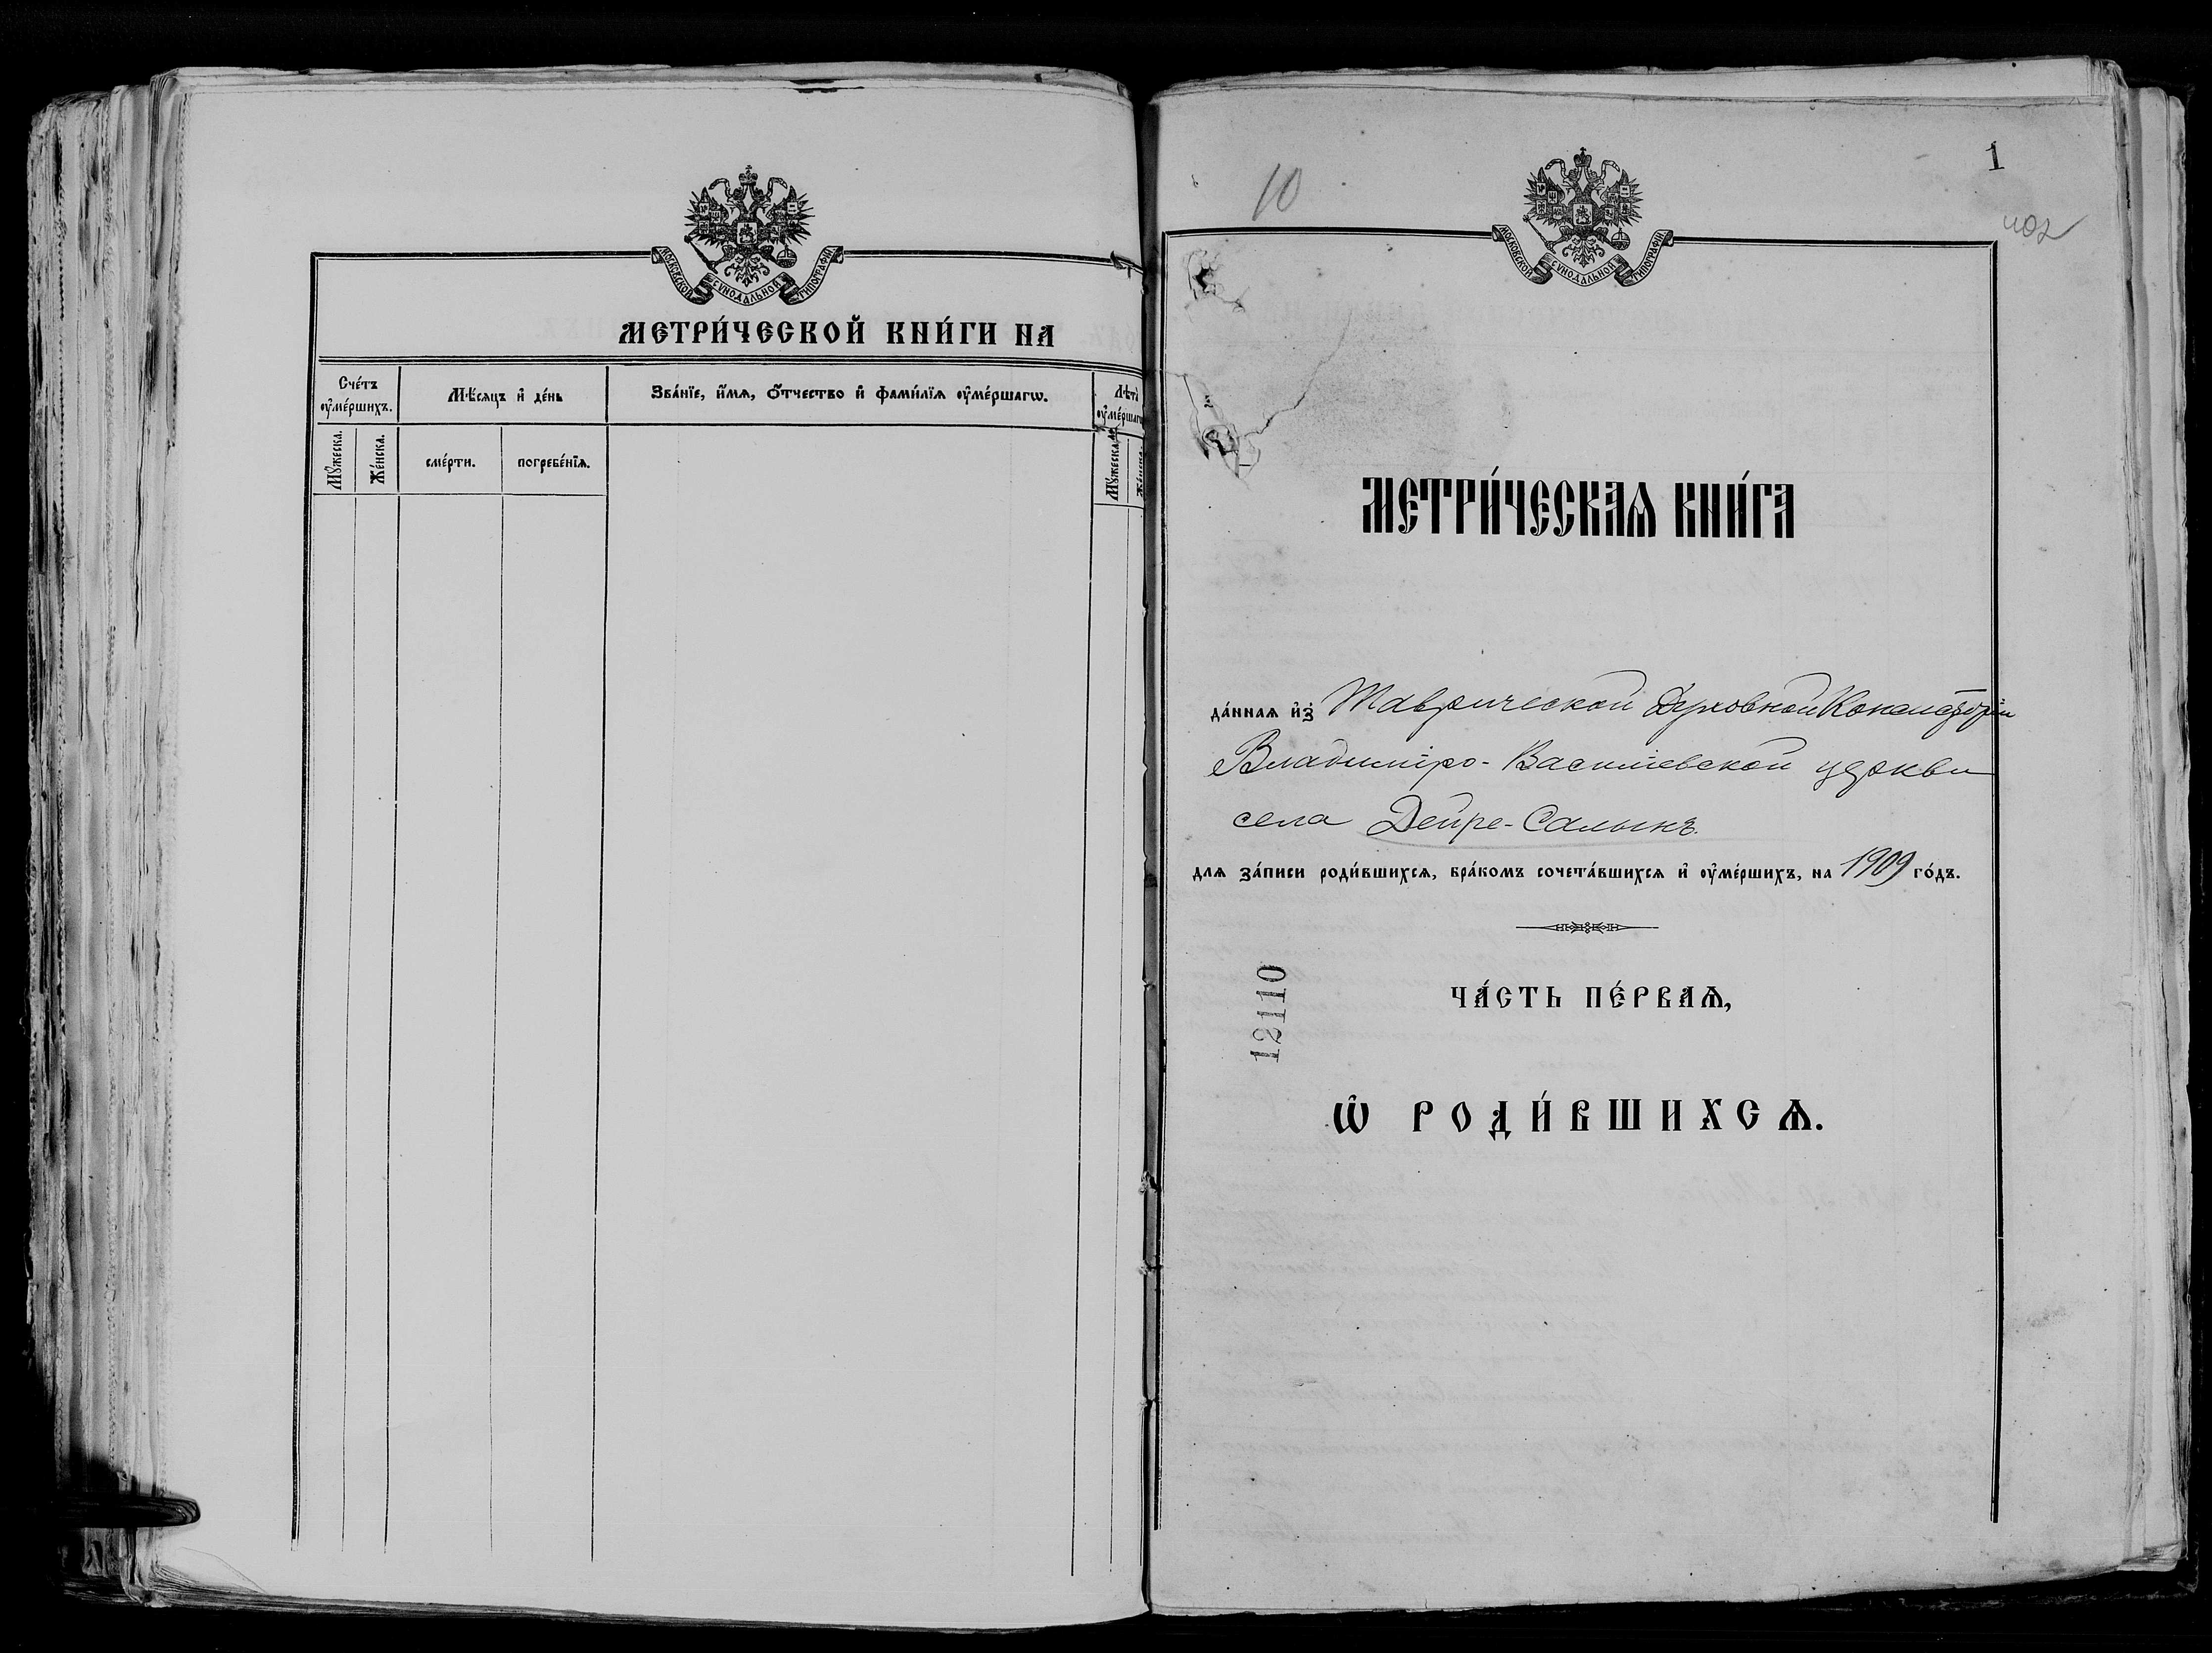 МОСКОВСКОЙ СѴНОДАЛЬНОЙ ТИПОГРАФІИ.
МЕТРИ́ЧЕСКОЙ КНИ́ГИ НА
Сче́тъ ᲂу҆ме́ршихъ.
Мѣ́сяцъ и҆ де́нь
Зва́нїе, и҆́мѧ, ѻ҆́тчество и҆ фами́лїѧ ᲂу҆ме́ршагѡ.
Лѣ́та ᲂу҆ме́ршагѡ
Мꙋ́жеска.
Же́нска.
сме́рти.
погребе́нїѧ.
Мꙋ́жеска.
Же́нска.
10
1
402
МОСКОВСКОЙ СѴНОДАЛЬНОЙ ТИПОГРАФІИ.
МЕТРИ́ЧЕСКАѦ КНИ́ГА
да́ннаѧ и҆з̾ Таврической Духовной Консисторіи
Владиміро-Васильевской церкви
села Дейре-Салынъ.
длѧ за́писи роди́вшихсѧ, бра́комъ сочета́вшихсѧ и҆ ᲂу҆ме́ршихъ, на 1909 го́дъ.
ЧА́СТЬ ПЕ́РВАѦ,
12110
Ѡ҆ РОДИ́ВШИХСѦ.